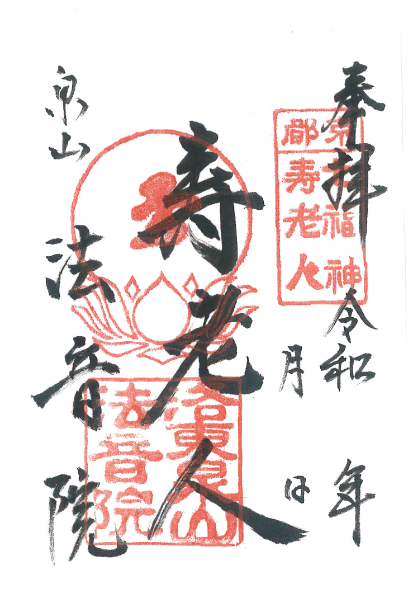 奉拝
令和 年
月 日
寿老人
泉山
法音院
京都
七福神
寿老人
洛東泉山
法音院